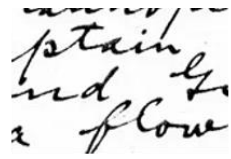 ptain
nd G
a flow